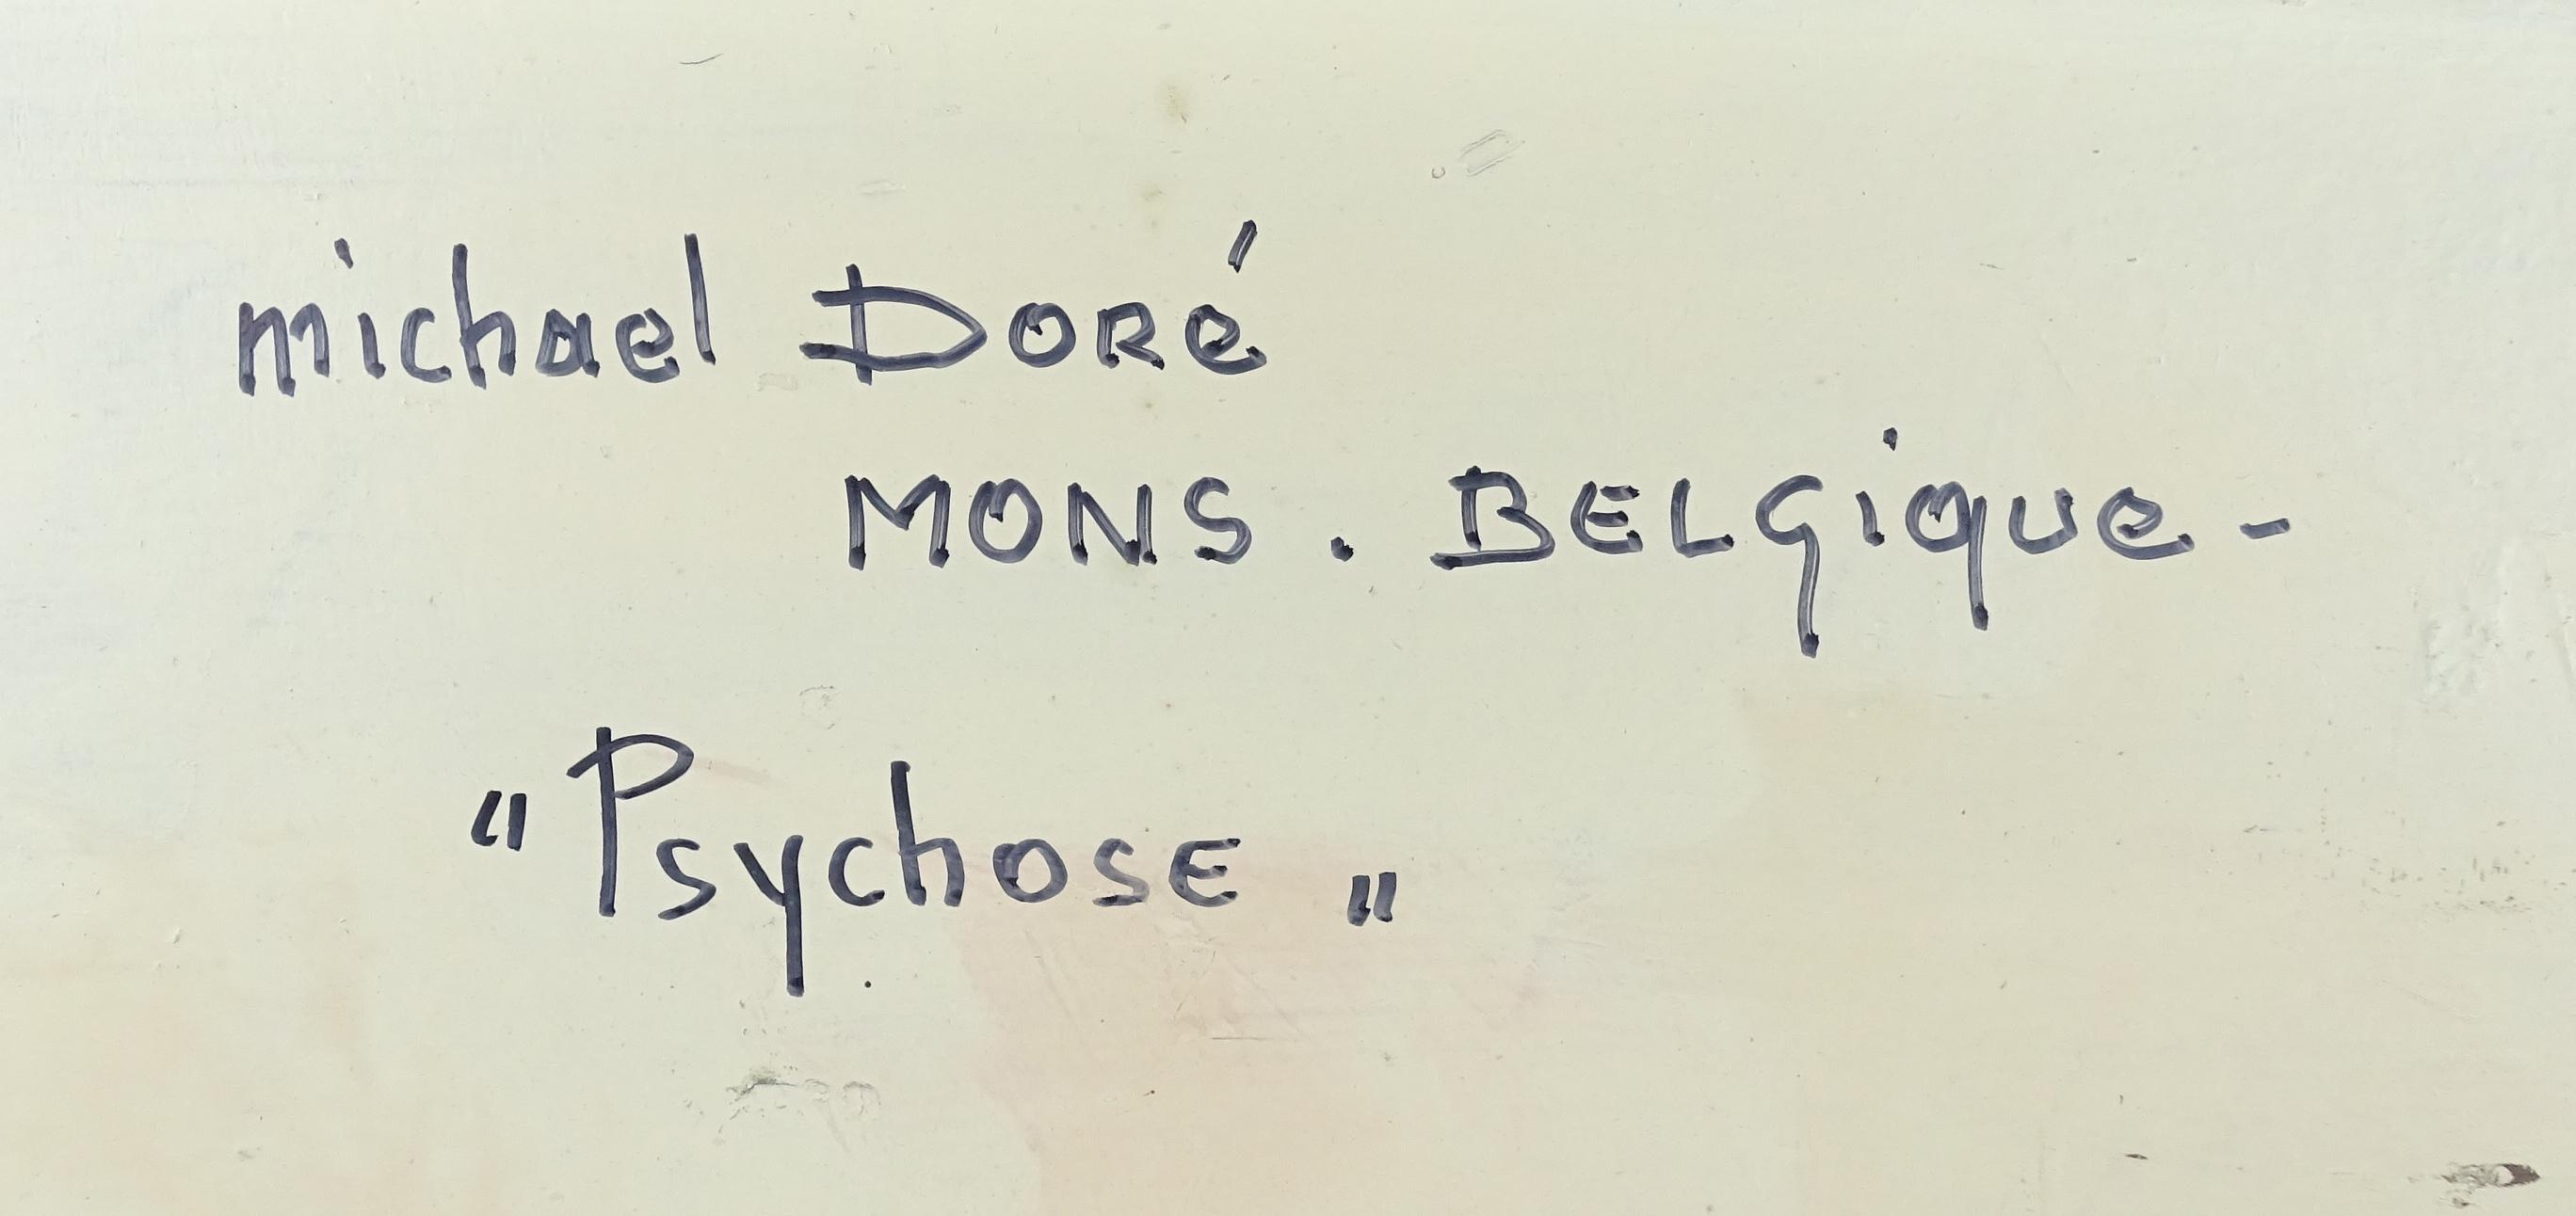 michael DORé
MONS. BELGique-
"Psychose„